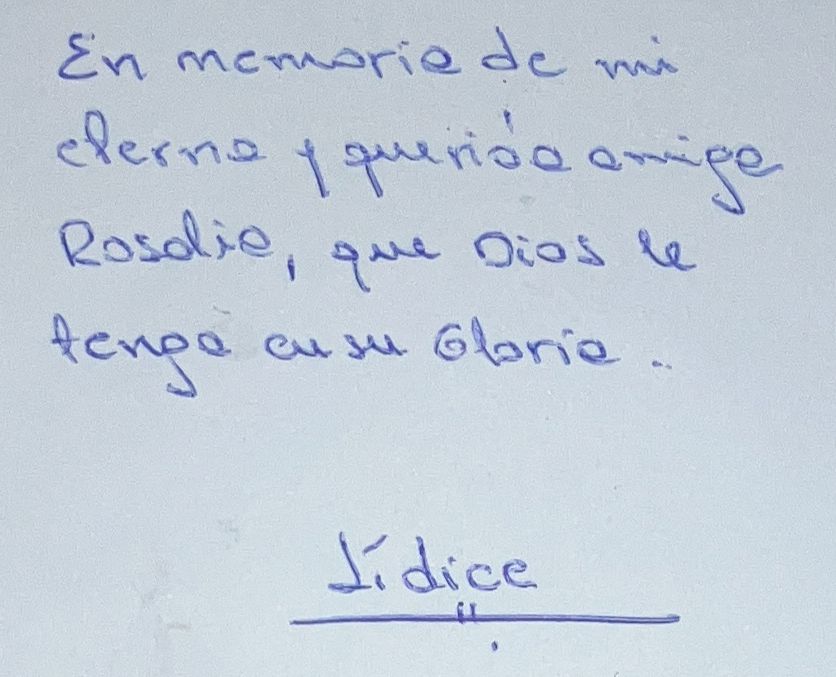 En memoria de mi
eterna y querida amiga
Rosalia, que Dios la
tenga en su Gloria.
Lídice